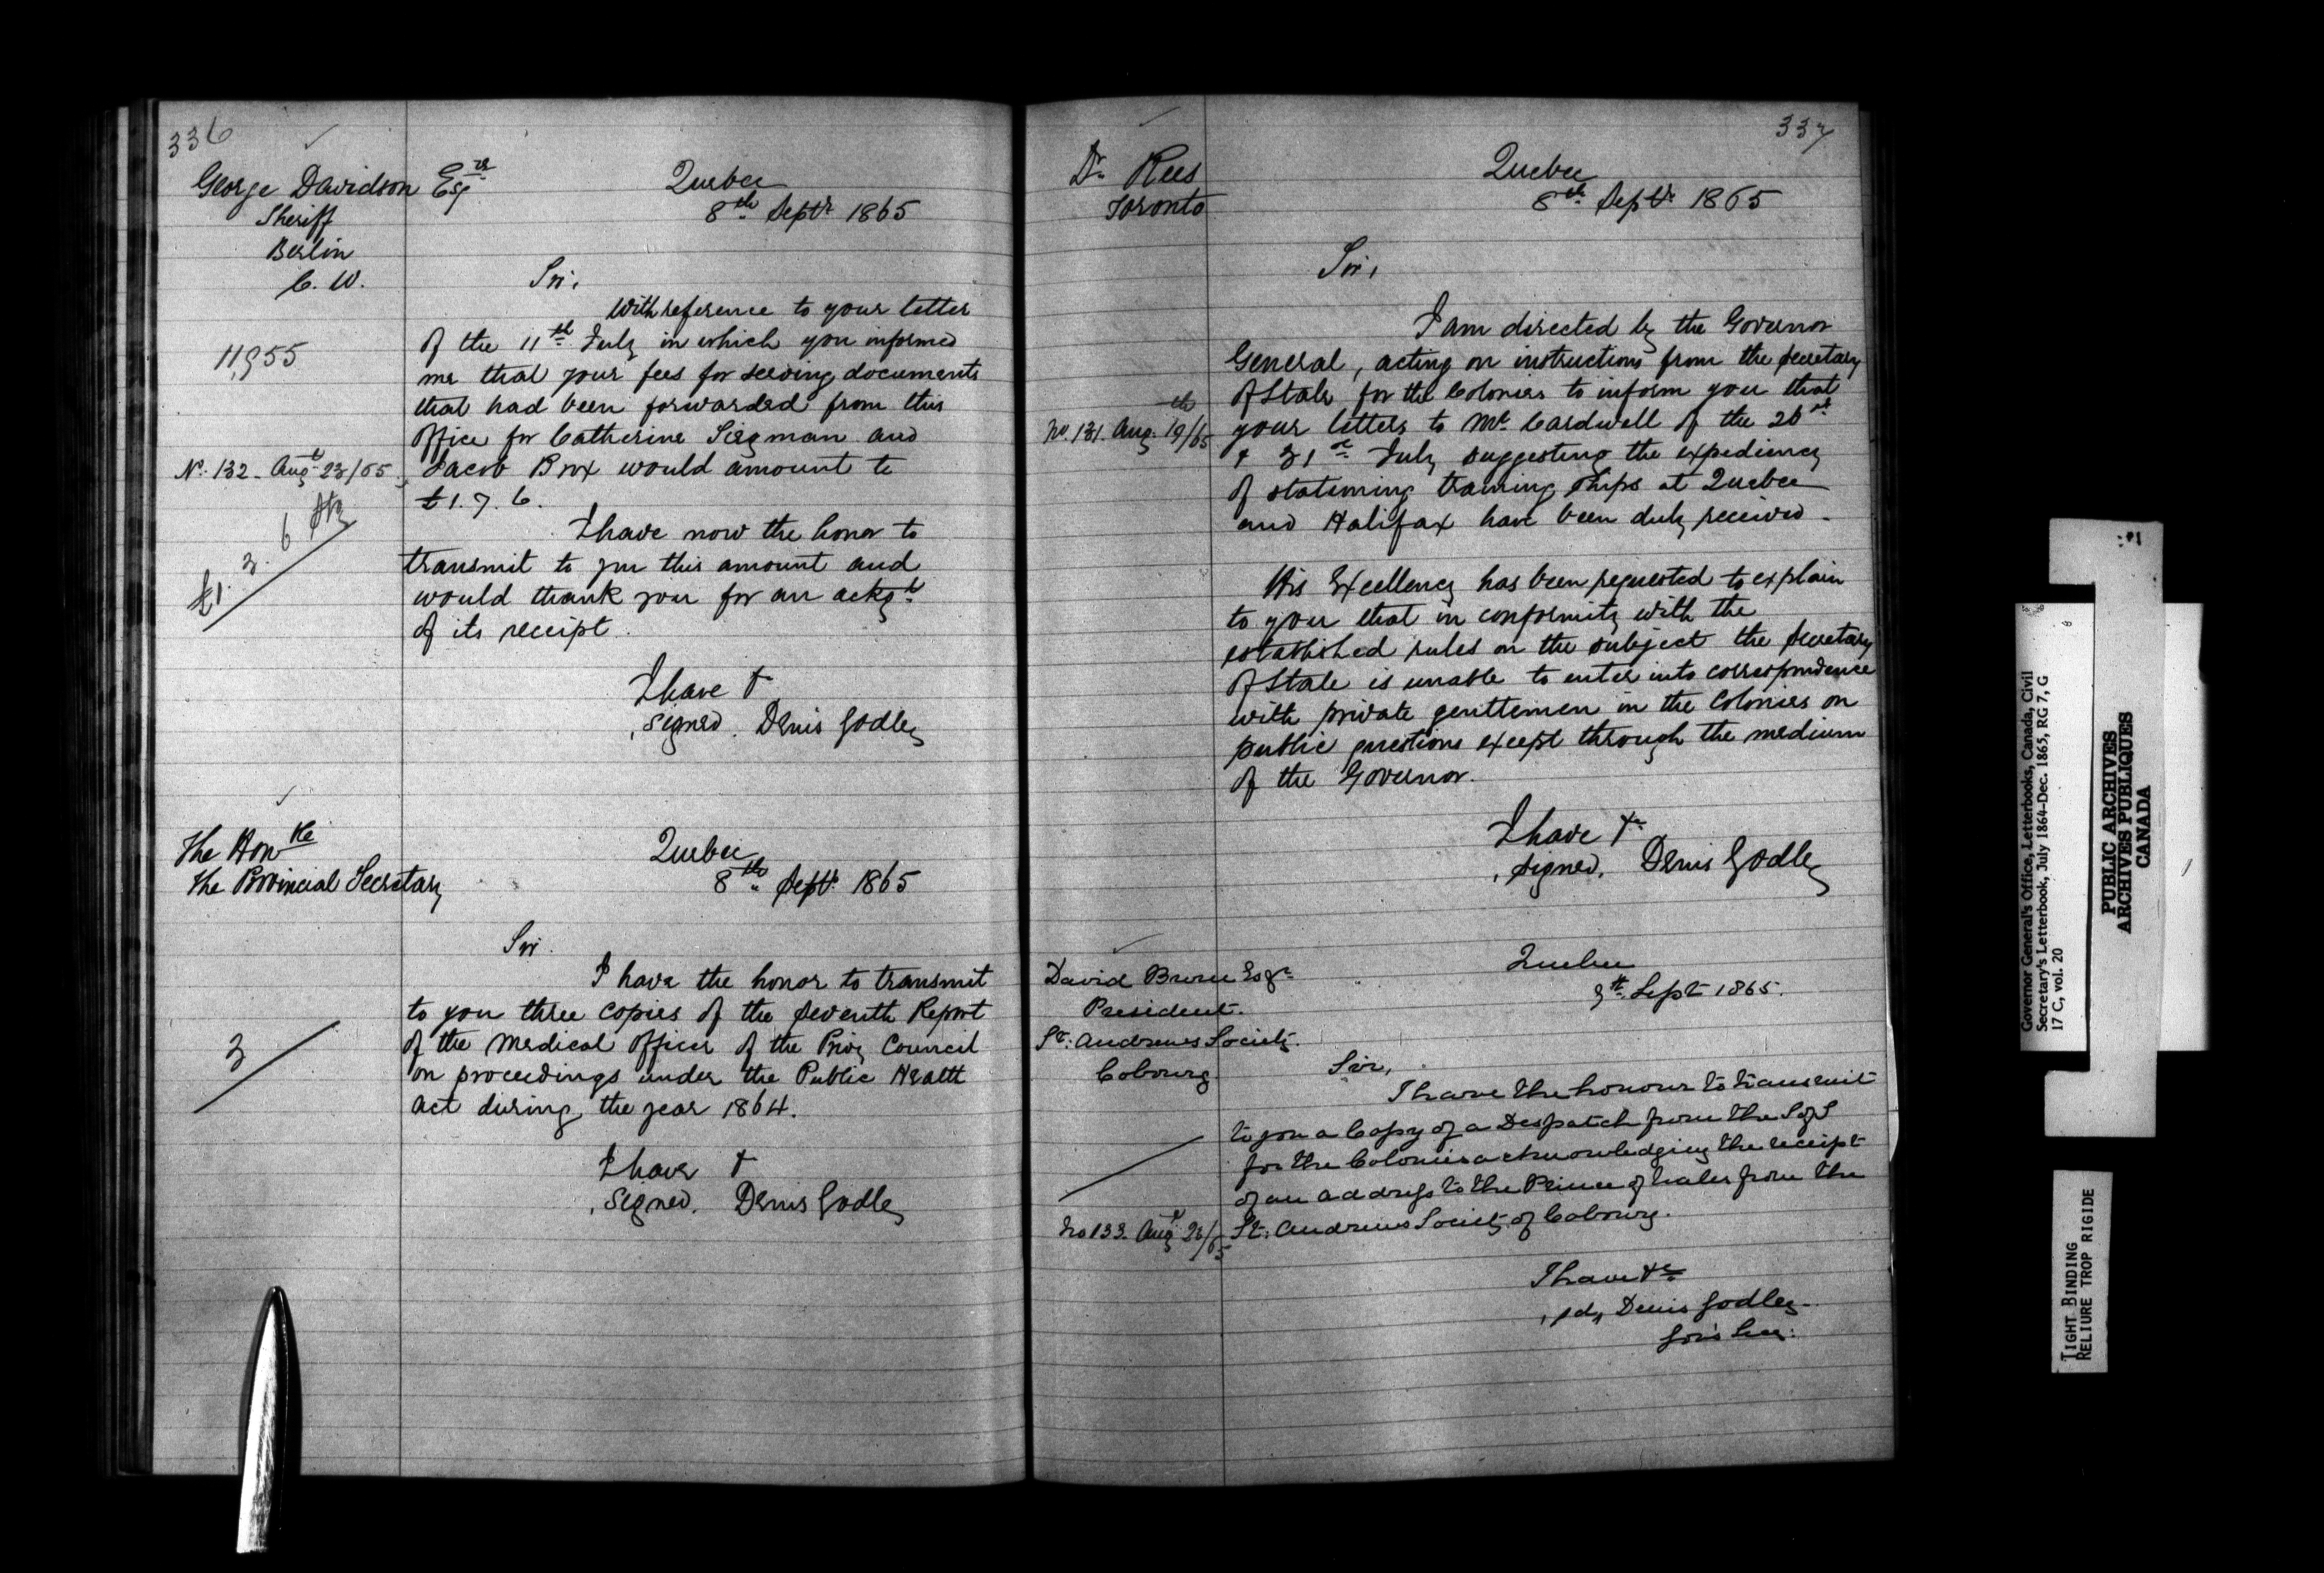 336
George Davidson Esqre
Sheriff
Berlin
C. W.
Quebec
8th Septr 1865
Sir,
With reference to your letter
of the 11th July in which you informed
me that your fees for serving documents
that had been forwarded from this
Office for Catherine Siegman and
Jacob Brox would amount to
£1. 7. 6.
11,955
No. 132 - Augt 23/65
£1. 3. 6 Stg
I have now the honor to
transmit to you this amount and
would thank you for an ackgt
of its receipt.
I have &
Signed. Denis Godley
The Honble
the Provincial Secretary
Quebec
8th Septr 1865
Sir.
I have the honor to transmit
to you three copies of the Seventh Report
of the Medical Officer of the Privy Council
on proceedings under the Public Health
Act during the year 1864.
3
I have &
Signed. Denis Godley
337
Dr Rees
Toronto
Quebec
8th Septr 1865
Sir,
I am directed by the Governor
General, acting on instructions from the Secretary
of State for the Colonies to inform you that
your letters to Mr Cardwell of the
& 31st July suggesting the expediency
of stationing training ships at Quebec
and Halifax have been duly received.
No. 131. Aug. 19th/65
His Excellency has been requested to explain
to you that in conformity with the
established rules on the subject the Secretary
of State is unable to enter into correspondence
with private gentlemen in the Colonies on
public questions except through the medium
of the Governor.
I have &c
Signed. Denis Godley
David Brown Esqr
President.
St: Andrews Society.
Cobourg.
Quebec
Sept 1865.
Sir,
I have the honour to transmit
to you a Copy of a Despatch from the S of S
for the Colonies acknowledging the receipt
of an address to the Prince of Wales from the
St: Andrews Society of Cobourg.
No 133. Augt 23/65
I have &c
sd, Denis Godley
Gov's Sec:
Governor General's Office, Letterbooks, Canada, Civil
Secretary's Letterbook, July 1864-Dec. 1865, RG 7, G
17 C, vol. 20
PUBLIC ARCHIVES
ARCHIVES PUBLIQUES
CANADA
TIGHT BINDING
RELIURE TROP RIGIDE